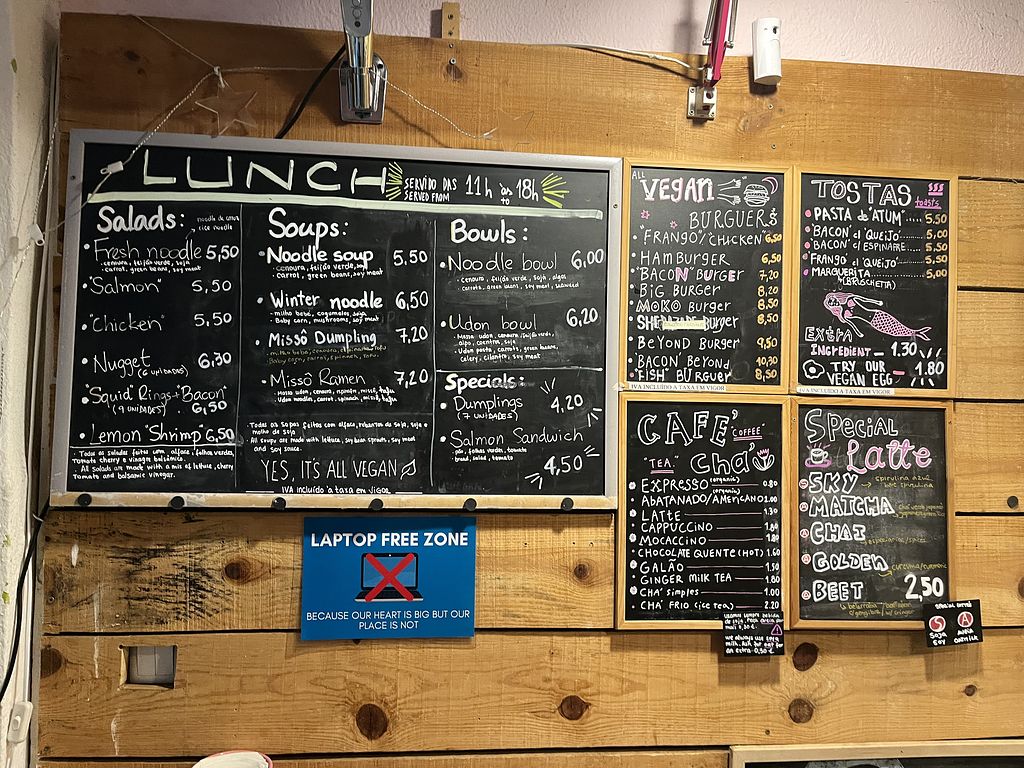 LUNCH
SERVIDO DAS 11h às 18h
SERVED FROM to
Salads:
Fresh noodle 5,50
cenoura, feijão verde, soja
carrot, green beans, soy meat
"Salmon" 5,50
"Chicken" 5,50
Nugget 6,30
(6 UNIDADES)
"Squid Rings + Bacon"
(9 UNIDADES) 6,50
Lemon "Shrimp" 6,50
Todas as saladas feitas com alface, folhas verdes,
Tomate cherry e vinagre balsâmico.
All salads are made with a mix of lettuce, cherry
Tomato and balsamic vinegar.
Soups:
Noodle soup 5,50
cenoura, feijão verde, soja
carrot, green beans, soy meat
Winter noodle 6,50
milho bebé, cogumelos, soja
Baby corn, mushrooms, soy meat
Missô Dumpling 7,20
Missô Ramen 7,20
Todas as sopas feitas com alface, rebentos de soja, soja e
molho de soja
All soups are made with lettuce, soy bean sprouts, soy meat
and soy sauce.
YES, IT'S ALL VEGAN
IVA incluído à taxa em vigor
Bowls:
Noodle bowl 6,00
cenoura, feijão verde, soja, algas
carrots, green beans, soy meat, seaweed
Udon bowl 6,20
Udon pasta, carrots, green beans,
celery, cilantro, soy meat
Specials:
Dumplings 4,20
(7 UNIDADES)
Salmon Sandwich
pão, folhas verdes, tomate
bread, salad, tomato
4,50
ALL
VEGAN
BURGUERS
"FRANGO"/"CHICKEN" 6,50
HAMBURGER 6,50
"BACON" BURGER 7,20
BIG BURGER 8,20
MOKO Burger 8,50
Burger 8,50
BEYOND Burger 9,50
"BACON" BEYOND 10,30
"FISH" BURGUER 8,50
IVA INCLUÍDO À TAXA EM VIGOR
TOSTAS
toasts
"PASTA d'ATUM" 5,50
"BACON" c/ "QUEIJO" 5,00
"BACON" c/ ESPINAFRE 5,50
"FRANGO" c/ "QUEIJO" 5,50
MARGUERITA 5,00
(BRUSCHETTA)
EXTRA
INGREDIENT 1.30
TRY OUR
VEGAN EGG 1.80
IVA INCLUÍDO À TAXA EM VIGOR
CAFÉ
"COFFEE"
"TEA" Chá
EXPRESSO (organic) 0.80
ABATANADO/AMERICANO 1.00
LATTE 1.30
CAPPUCCINO 1.80
MOCACCINO 1.80
CHOCOLATE QUENTE (HOT) 1.60
GALÃO 1.50
GINGER MILK TEA 1.80
CHÁ simples 1.00
CHÁ FRIO (ice tea) 2.20
we always use soya
milk. Ask for oat for
an extra 0,30 €
Special
Latte
SKY
spirulina azul
blue spirulina
MATCHA
CHAI
especiarias/spices
GOLDEN
curcuma/turmeric
BEET
2,50
SOJA
SOY
A
AVEIA
OATMILK
LAPTOP FREE ZONE
BECAUSE OUR HEART IS BIG BUT OUR
PLACE IS NOT